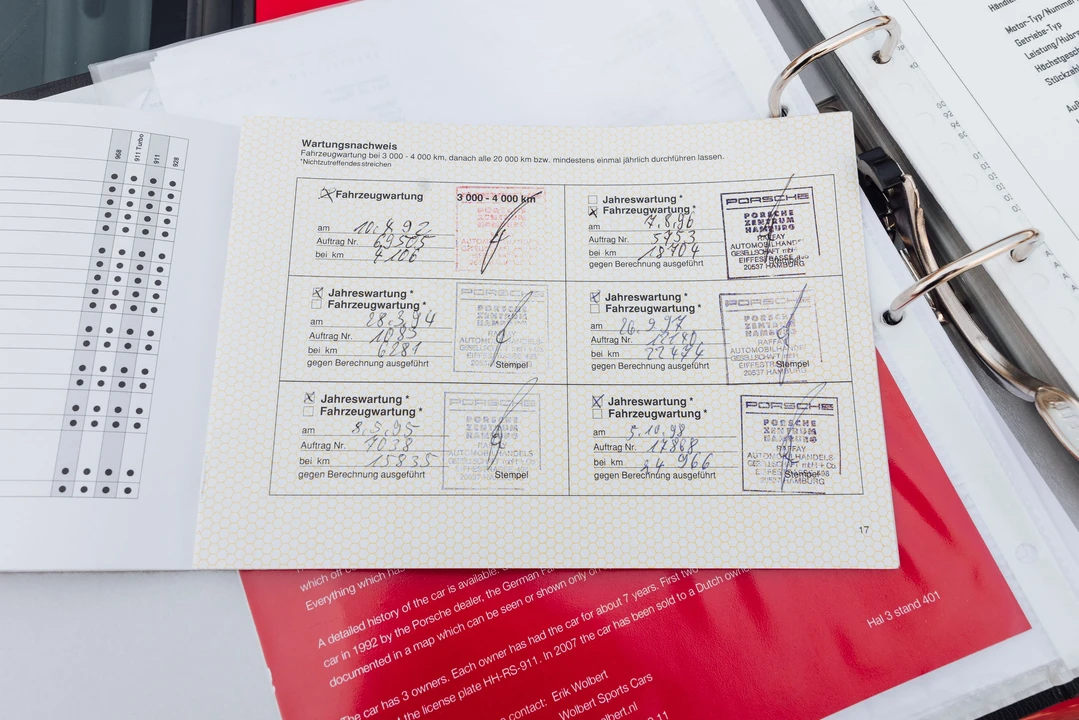 968
911 Turbo
911
928
Wartungsnachweis
Fahrzeugwartung bei 3 000 - 4 000 km, danach alle 20 000 km bzw. mindestens einmal jährlich durchführen lassen.
*Nichtzutreffendes streichen
Fahrzeugwartung 3 000 - 4 000 km
am 10.8.92
Auftrag Nr. 69505
bei km 4106
Jahreswartung *
Fahrzeugwartung *
am 28.3.94
Auftrag Nr. 1085
bei km 6281
gegen Berechnung ausgeführt Stempel
PORSCHE
PORSCHE
ZENTRUM
HAMBURG
Jahreswartung *
Fahrzeugwartung *
am 8.5.95
Auftrag Nr. 7038
bei km 15835
gegen Berechnung ausgeführt Stempel
PORSCHE
PORSCHE
ZENTRUM
HAMBURG
Jahreswartung *
Fahrzeugwartung *
am 7.8.96
Auftrag Nr. 5753
bei km 18704
gegen Berechnung ausgeführt
PORSCHE
PORSCHE
ZENTRUM
HAMBURG
RAFFAY
AUTOMOBILHANDELS
GESELLSCHAFT mbH
20537 HAMBURG
Jahreswartung *
Fahrzeugwartung *
am 26.9.97
Auftrag Nr. 12240
bei km 22494
gegen Berechnung ausgeführt Stempel
PORSCHE
PORSCHE
ZENTRUM
HAMBURG
RAFFAY
AUTOMOBILHANDELS
20537 HAMBURG
Jahreswartung *
Fahrzeugwartung *
am 5.10.98
Auftrag Nr. 17868
bei km 24 966
gegen Berechnung ausgeführt Stempel
PORSCHE
PORSCHE
ZENTRUM
HAMBURG
RAFFAY
AUTOMOBILHANDELS
GESELLSCHAFT mbH + Co.
20537 HAMBURG
17
Motor-Typ/Nummer
Getriebe-Typ
Leistung/Hubr
Höchstgesch
Stückzahl
which off
Everything which has
A detailed history of the car is available.
car in 1992 by the Porsche dealer, the German
documented in a map which can be seen or shown only on
The car has 3 owners. Each owner has had the car for about 7 years. First two
the license plate HH-RS-911. In 2007 the car has been sold to a Dutch owne
contact: Erik Wolbert
Wolbert Sports Cars
Hal 3 stand 401